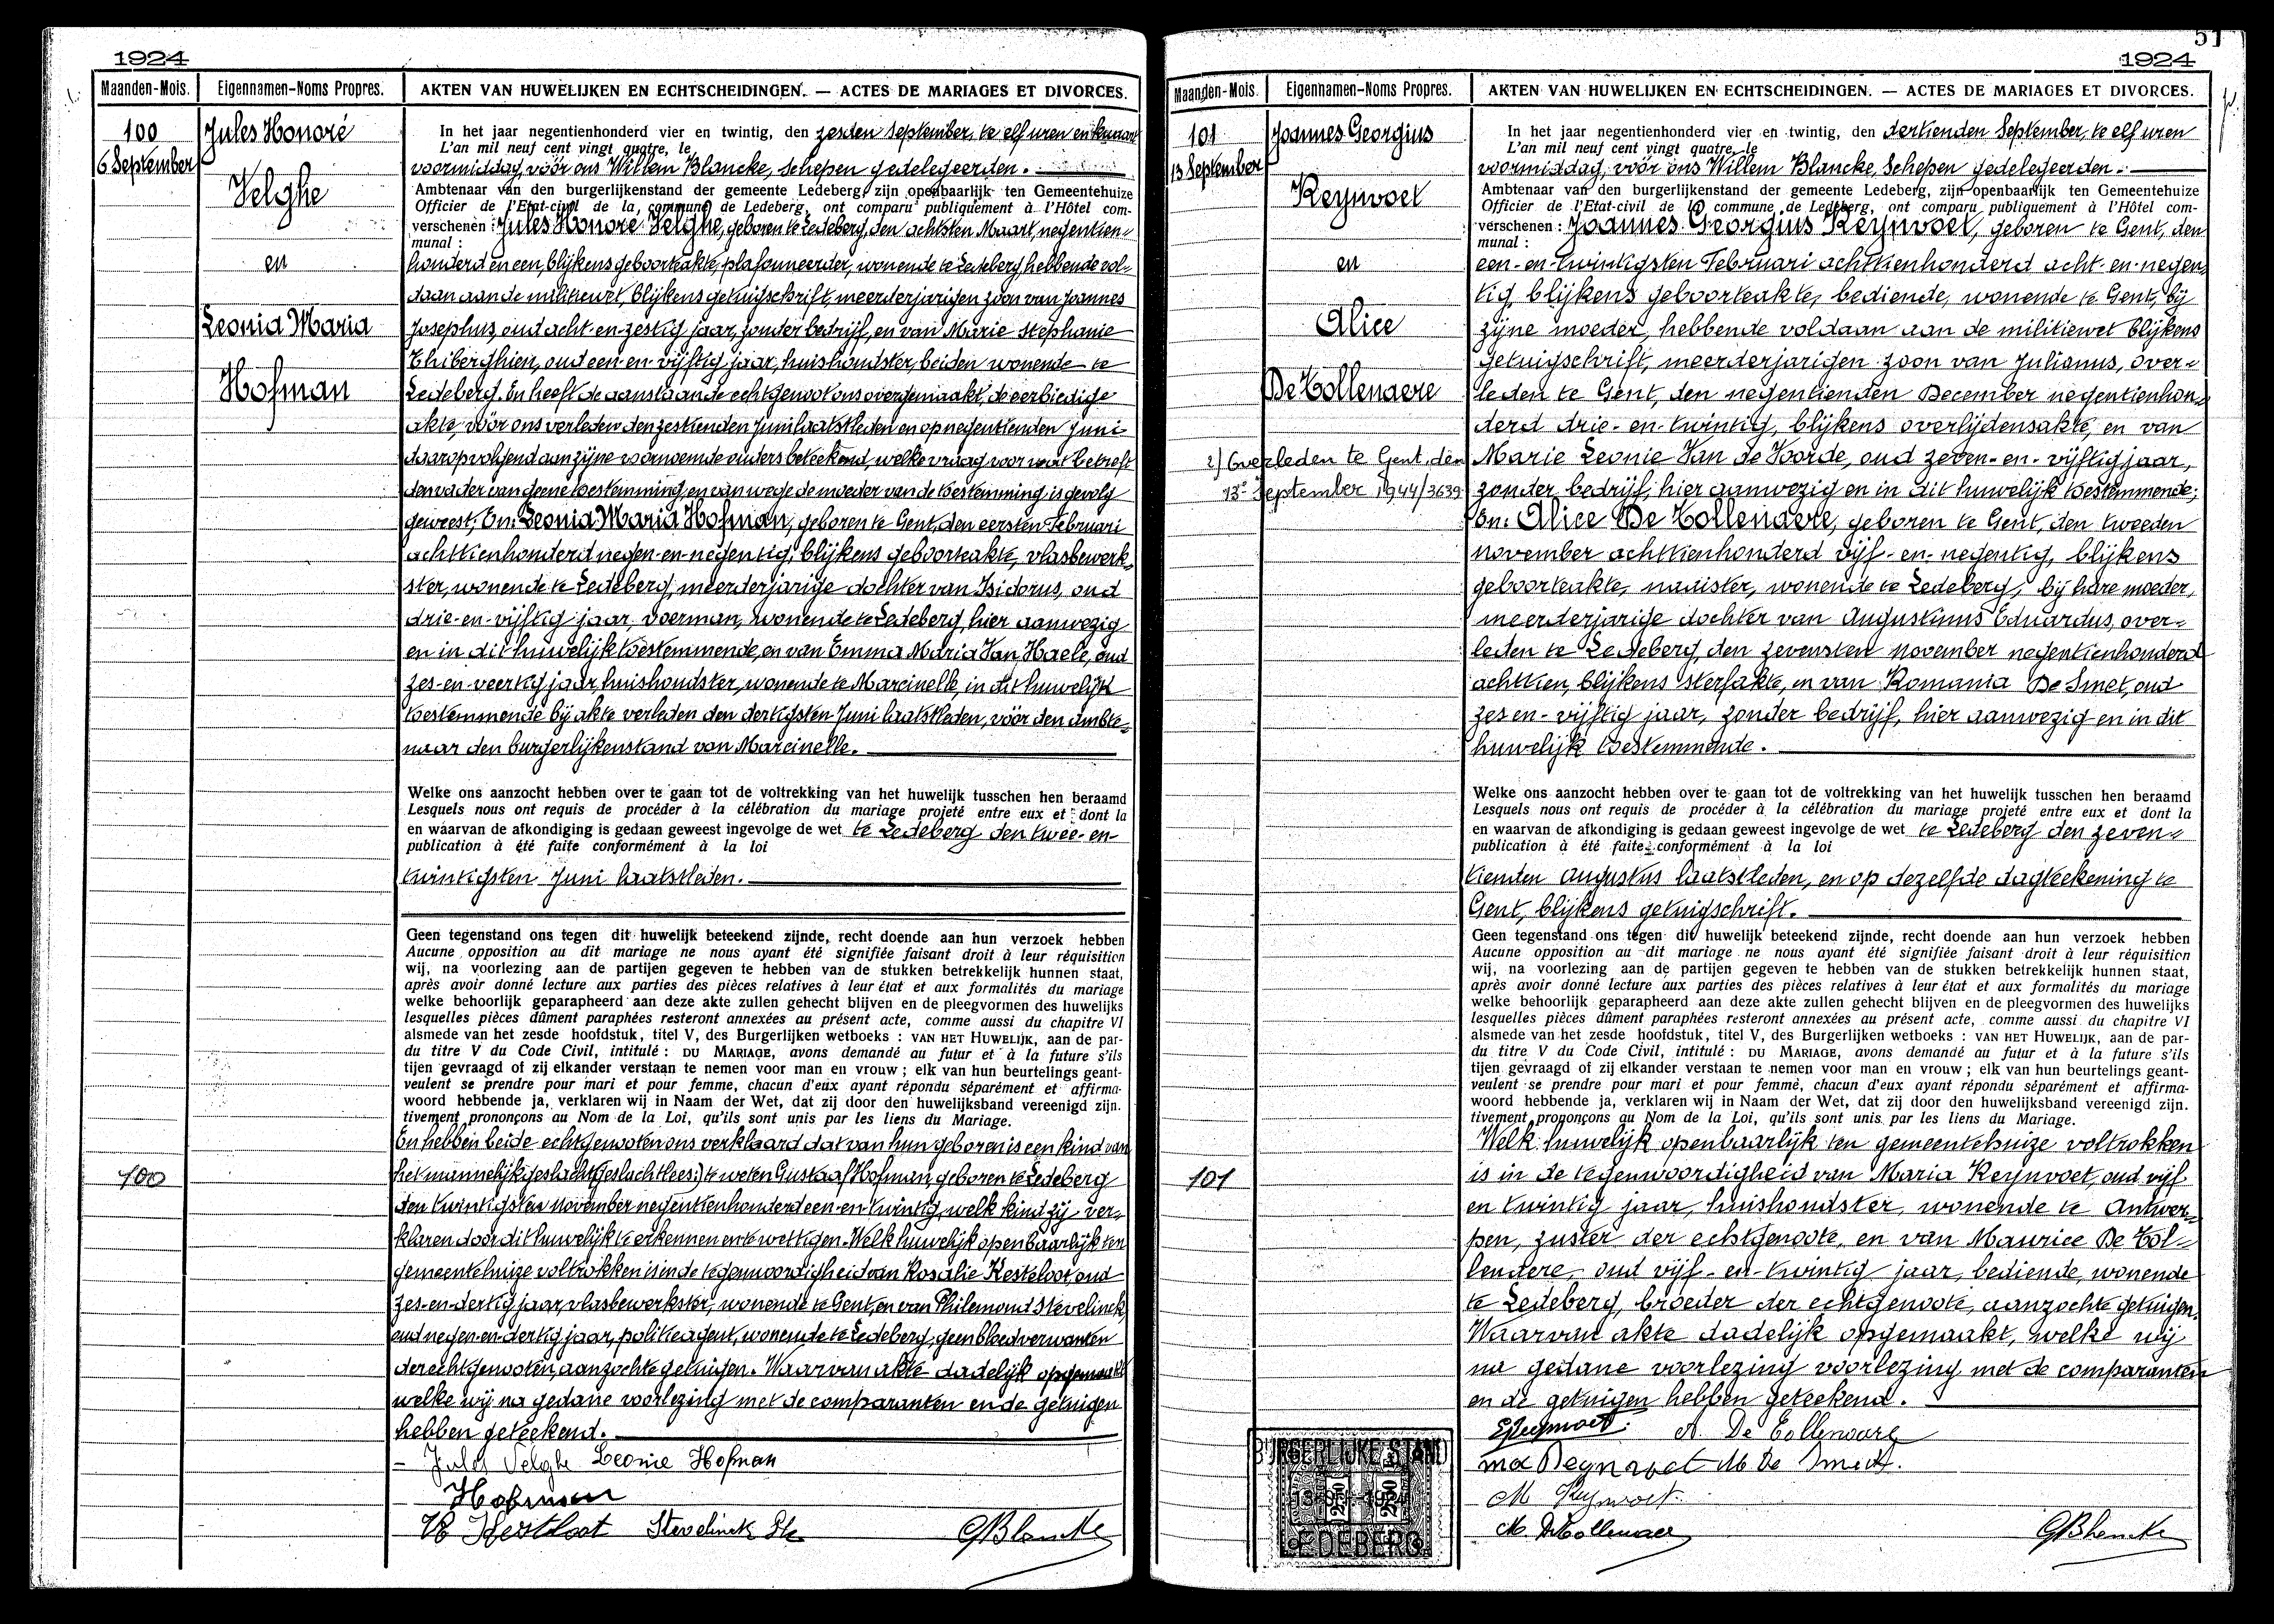 1924
Maanden-Mois.
Eigennamen-Noms Propres.
AKTEN VAN HUWELIJKEN EN ECHTSCHEIDINGEN. — ACTES DE MARIAGES ET DIVORCES.
100
6 September
Jules Honoré
Velghe
en
Leonia Maria
Hofman
In het jaar negentienhonderd vier en twintig, den zesden September, te elf uren en kwaart
L'an mil neuf cent vingt quatre, le
voormiddag, vóór ons Willem Blancke, Schepen gedelegeerden.
Ambtenaar van den burgerlijkenstand der gemeente Ledeberg zijn openbaarlijk ten Gemeentehuize
Officier de l'Etat-civil de la commune de Ledeberg, ont comparu publiquement à l'Hôtel com-
verschenen : Jules Honoré Velghe, geboren te Ledeberg, den achtsten Maart, negentien-
munal :
honderd en een, blijkens geboorteakte, plafonneerder, wonende te Ledeberg, hebbende vol-
daan aan de militiewet, blijkens getuigschrift, meerderjarigen zoon van Joannes
Josephus, oud acht-en-zestig jaar, zonder bedrijf, en van Marie Stephanie
Thiberghien, oud een-en-vijftig jaar, huishoudster, beiden wonende te
Ledeberg. En heeft de aanstaande echtgenoot ons overgemaakt, de eerbiedige
akte, vóór ons verleden den zestienden Juni laatstleden en op negentienden Juni
daaropvolgend aan zijne voornoemde ouders beteekend, welke vraag voor wat betreft
den vader van geene toestemming, en van wege de moeder van de toestemming is gevolg
geweest; En: Leonia Maria Hofman, geboren te Gent, den eersten Februari
achttienhonderd negen-en-negentig, blijkens geboorteakte, vlasbewerk-
ster, wonende te Ledeberg, meerderjarige dochter van Isidorus, oud
drie-en-vijftig jaar, voerman, wonende te Ledeberg, hier aanwezig
en in dit huwelijk toestemmende, en van Emma Maria Van Haele, oud
zes-en-veertig jaar, huishoudster, wonende te Marcinelle, in dit huwelijk
toestemmende bij akte verleden den dertigsten Juni laatstleden, vóór den ambte-
naar den burgerlijkenstand van Marcinelle.
Welke ons aanzocht hebben over te gaan tot de voltrekking van het huwelijk tusschen hen beraamd
Lesquels nous ont requis de procéder à la célébration du mariage projeté entre eux et dont la
en waarvan de afkondiging is gedaan geweest ingevolge de wet te Ledeberg den twee-en-
publication à été faite conformément à la loi
twintigsten Juni laatstleden.
Geen tegenstand ons tegen dit huwelijk beteekend zijnde, recht doende aan hun verzoek hebben
Aucune opposition au dit mariage ne nous ayant été signifiée faisant droit à leur réquisition
wij, na voorlezing aan de partijen gegeven te hebben van de stukken betrekkelijk hunnen staat,
après avoir donné lecture aux parties des pièces relatives à leur état et aux formalités du mariage
welke behoorlijk geparapheerd aan deze akte zullen gehecht blijven en de pleegvormen des huwelijks
lesquelles pièces dûment paraphées resteront annexées au présent acte, comme aussi du chapitre VI
alsmede van het zesde hoofdstuk, titel V, des Burgerlijken wetboeks : VAN HET HUWELIJK, aan de par-
du titre V du Code Civil, intitulé : DU MARIAGE, avons demandé au futur et à la future s'ils
tijen gevraagd of zij elkander verstaan te nemen voor man en vrouw ; elk van hun beurtelings geant-
veulent se prendre pour mari et pour femme, chacun d'eux ayant répondu séparément et affirma-
woord hebbende ja, verklaren wij in Naam der Wet, dat zij door den huwelijksband vereenigd zijn.
tivement prononçons au Nom de la Loi, qu'ils sont unis par les liens du Mariage.
En hebben beide echtgenooten ons verklaard dat van hun geboren is een kind van
100
het mannelijk geslacht (geslacht lees:) te weten Gustaaf Hofman, geboren te Ledeberg
den twintigsten November negentienhonderd een-en-twintig, welk kind zij ver-
klaren door dit huwelijk te erkennen en te wettigen. Welk huwelijk openbaarlijk ten
gemeentehuize voltrokken is in de tegenwoordigheid van Rosalie Kesteloot, oud
zes-en-dertig jaar, vlasbewerkster, wonende te Gent, en van Philemond Stevelinck,
oud negen-en-dertig jaar, politieagent, wonende te Ledeberg, geen bloedverwanten
der echtgenooten, aanzochte getuigen. Waarvan akte dadelijk opgemaakt
welke wij na gedane voorlezing met de comparanten en de getuigen
hebben geteekend.
Jules Velghe Leonie Hofman
Hofman
Kesteloot Stevelinck
Blancke
51
1924
Maanden-Mois.
Eigennamen-Noms Propres.
AKTEN VAN HUWELIJKEN EN ECHTSCHEIDINGEN. — ACTES DE MARIAGES ET DIVORCES.
101
13 September
Joannes Georgius
Reynvoet
en
Alice
De Tollenaere
2) Overleden te Gent, den
13e September 1944/3639
In het jaar negentienhonderd vier en twintig, den dertienden September, te elf uren
L'an mil neuf cent vingt quatre, le
voormiddag, vóór ons Willem Blancke, Schepen gedelegeerden.
Ambtenaar van den burgerlijkenstand der gemeente Ledeberg, zijn openbaarlijk ten Gemeentehuize
Officier de l'Etat-civil de la commune de Ledeberg, ont comparu publiquement à l'Hôtel com-
verschenen : Joannes Georgius Reynvoet, geboren te Gent, den
munal :
een-en-twintigsten Februari achttienhonderd acht-en-negen-
tig, blijkens geboorteakte, bediende, wonende te Gent, bij
zijne moeder, hebbende voldaan aan de militiewet blijkens
getuigschrift, meerderjarigen zoon van Julianus, over-
leden te Gent, den negentienden December negentienhon-
derd drie-en-twintig, blijkens overlijdensakte, en van
Marie Leonie Van de Voorde, oud zeven-en-vijftig jaar,
zonder bedrijf, hier aanwezig en in dit huwelijk toestemmende;
En: Alice De Tollenaere, geboren te Gent, den tweeden
November achttienhonderd vijf-en-negentig, blijkens
geboorteakte, naaister, wonende te Ledeberg, bij hare moeder,
meerderjarige dochter van Augustinus Eduardus, over-
leden te Ledeberg, den zevensten November negentienhonderd
achttien, blijkens sterfakte, en van Romania De Smet, oud
zes en-vijftig jaar, zonder bedrijf, hier aanwezig en in dit
huwelijk toestemmende.
Welke ons aanzocht hebben over te gaan tot de voltrekking van het huwelijk tusschen hen beraamd
Lesquels nous ont requis de procéder à la célébration du mariage projeté entre eux et dont la
en waarvan de afkondiging is gedaan geweest ingevolge de wet te Ledeberg den zeven-
publication à été faite conformément à la loi
tienden Augustus laatstleden, en op dezelfde dagteekening te
Gent, blijkens getuigschrift.
Geen tegenstand ons tegen dit huwelijk beteekend zijnde, recht doende aan hun verzoek hebben
Aucune opposition au dit mariage ne nous ayant été signifiée faisant droit à leur réquisition
wij, na voorlezing aan de partijen gegeven te hebben van de stukken betrekkelijk hunnen staat,
après avoir donné lecture aux parties des pièces relatives à leur état et aux formalités du mariage
welke behoorlijk geparapheerd aan deze akte zullen gehecht blijven en de pleegvormen des huwelijks
lesquelles pièces dûment paraphées resteront annexées au présent acte, comme aussi du chapitre VI
alsmede van het zesde hoofdstuk, titel V, des Burgerlijken wetboeks : VAN HET HUWELIJK, aan de par-
du titre V du Code Civil, intitulé : DU MARIAGE, avons demandé au futur et à la future s'ils
tijen gevraagd of zij elkander verstaan te nemen voor man en vrouw ; elk van hun beurtelings geant-
veulent se prendre pour mari et pour femme, chacun d'eux ayant répondu séparément et affirma-
woord hebbende ja, verklaren wij in Naam der Wet, dat zij door den huwelijksband vereenigd zijn.
tivement prononçons au Nom de la Loi, qu'ils sont unis par les liens du Mariage.
Welk huwelijk openbaarlijk ten gemeentehuize voltrokken
101
is in de tegenwoordigheid van Maria Reynvoet, oud vijf
en twintig jaar, huishoudster, wonende te Antwer-
pen, zuster der echtgenoote, en van Maurice De Tol-
lenaere, oud vijf-en-twintig jaar, bediende, wonende
te Ledeberg, broeder der echtgenoote, aanzochte getuigen.
Waarvan akte dadelijk opgemaakt, welke wij
na gedane voorlezing voorlezing met de comparanten
en de getuigen hebben geteekend.
Reynvoet. A. De Tollenaere
Reynvoet De Smedt.
M Reynvoet
M. DeTollenaere
Blancke
BURGERLIJKE STAND
LEDEBERG